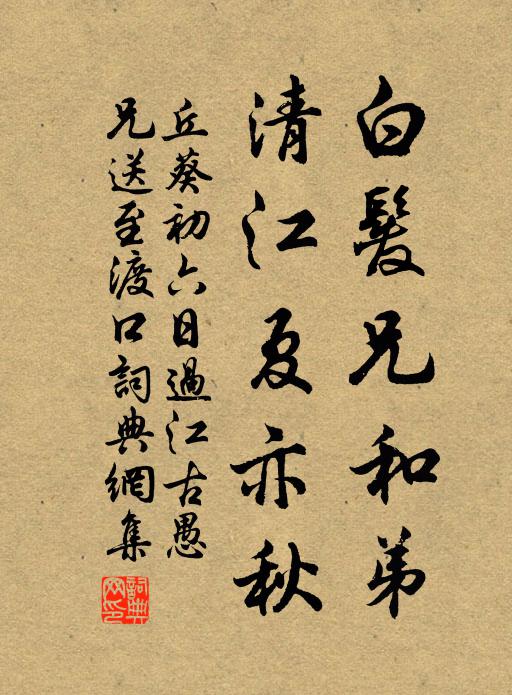 白髮兄和弟
清江夏亦秋
丘葵初六日過江古愚
兄送至渡口詞典網集
詞典
网印